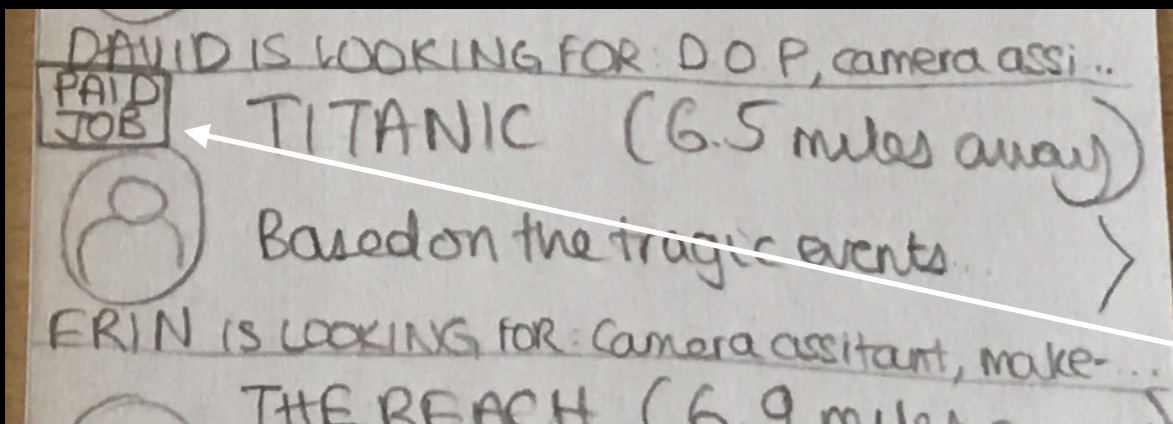 DAVID IS LOOKING FOR: D O P, camera assi...
PAID
JOB
TITANIC (6.5 miles away)
Based on the tragic events... >
ERIN IS LOOKING FOR: Camera assitant, make-...
THE BEACH (6.9 miles